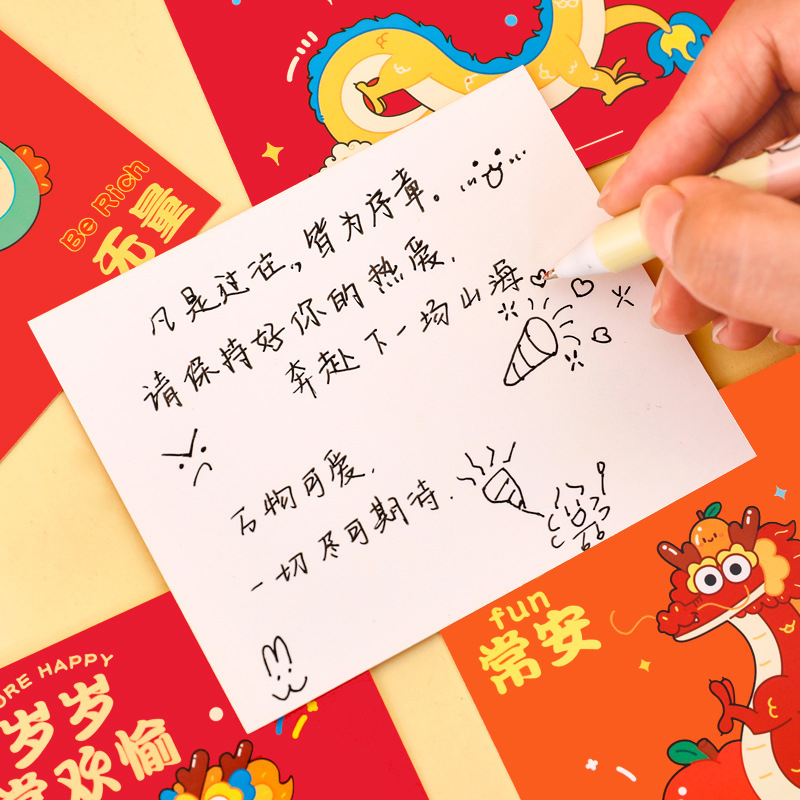 Be Rich
无量
凡是过往,皆为序章。
请保持好你的热爱.
奔赴下一场山海
万物可爱.
一切尽可期待.
fun
常安
ORE HAPPY
岁岁
常欢愉